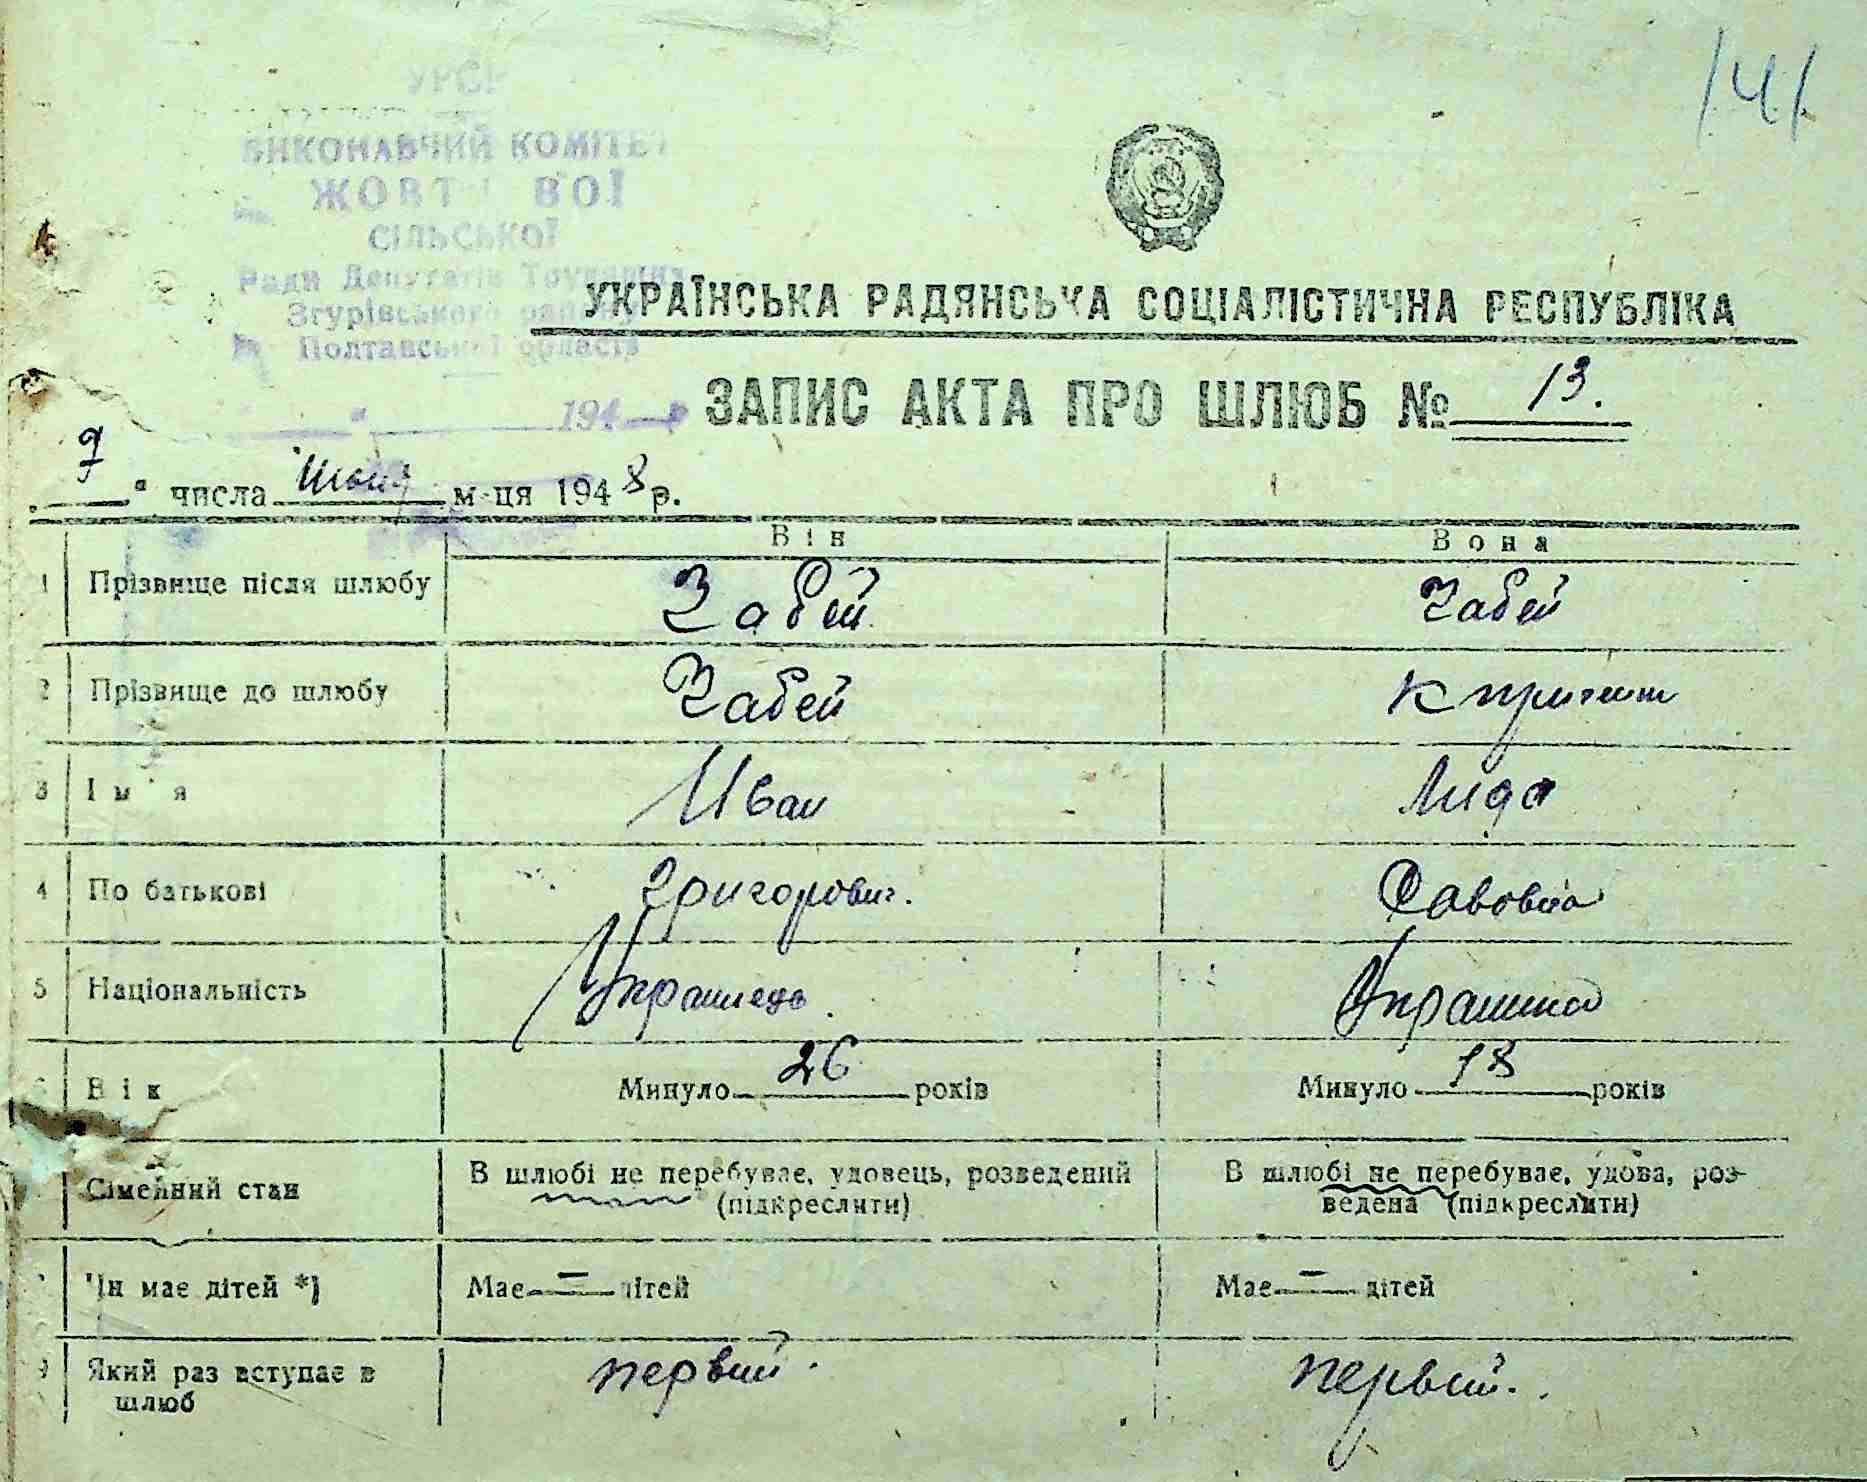 141
УРСР
ВИКОНАВЧИЙ КОМІТЕТ
ЖОВТНЕВОЇ
СІЛЬСЬКОЇ
Ради Депутатів Трудящих
Згурівського району
Полтавської області
194
УКРАЇНСЬКА РАДЯНСЬКА СОЦІАЛІСТИЧНА РЕСПУБЛІКА
ЗАПИС АКТА ПРО ШЛЮБ № 13.
7 " числа Июня м-ця 1948 р.
Він Вона
1 Прізвище після шлюбу Забей Забей
2 Прізвище до шлюбу Забей
3 Ім'я Иван Лида
4 По батькові Григорович. Савовна
5 Національність Украинець. Украинка
Вік Минуло 26 років Минуло 18 років
Сімейний стан В шлюбі не перебуває, удовець, розведений (підкреслити) В шлюбі не перебуває, удова, роз-
ведена (підкреслити)
Чи має дітей *) Має — дітей Має — дітей
9 Який раз вступає в шлюб первий. первий.